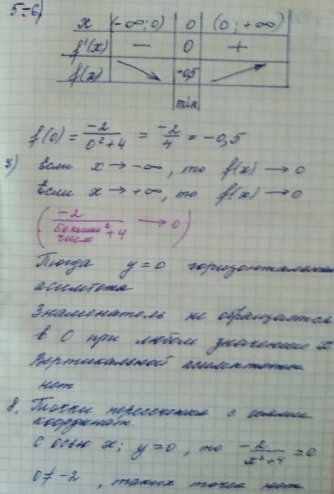 5-6)
x (-∞;0) 0 (0;+∞)
f'(x) − 0 +
f(x) -0,5
min
f(0) = -2/(0²+4) = -2/4 = -0,5
7) если x → -∞, то f(x) → 0
если x → +∞, то f(x) → 0
(-2/(большое число² + 4) → 0)
Тогда y=0 горизонтальная
асимптота
Знаменатель не обращается
в 0 при любом значении x
Вертикальной асимптоты
нет
8. Точки пересечения с осями
координат.
С осью x; y=0, то -2/(x²+4) = 0
0≠-2, таких точек нет